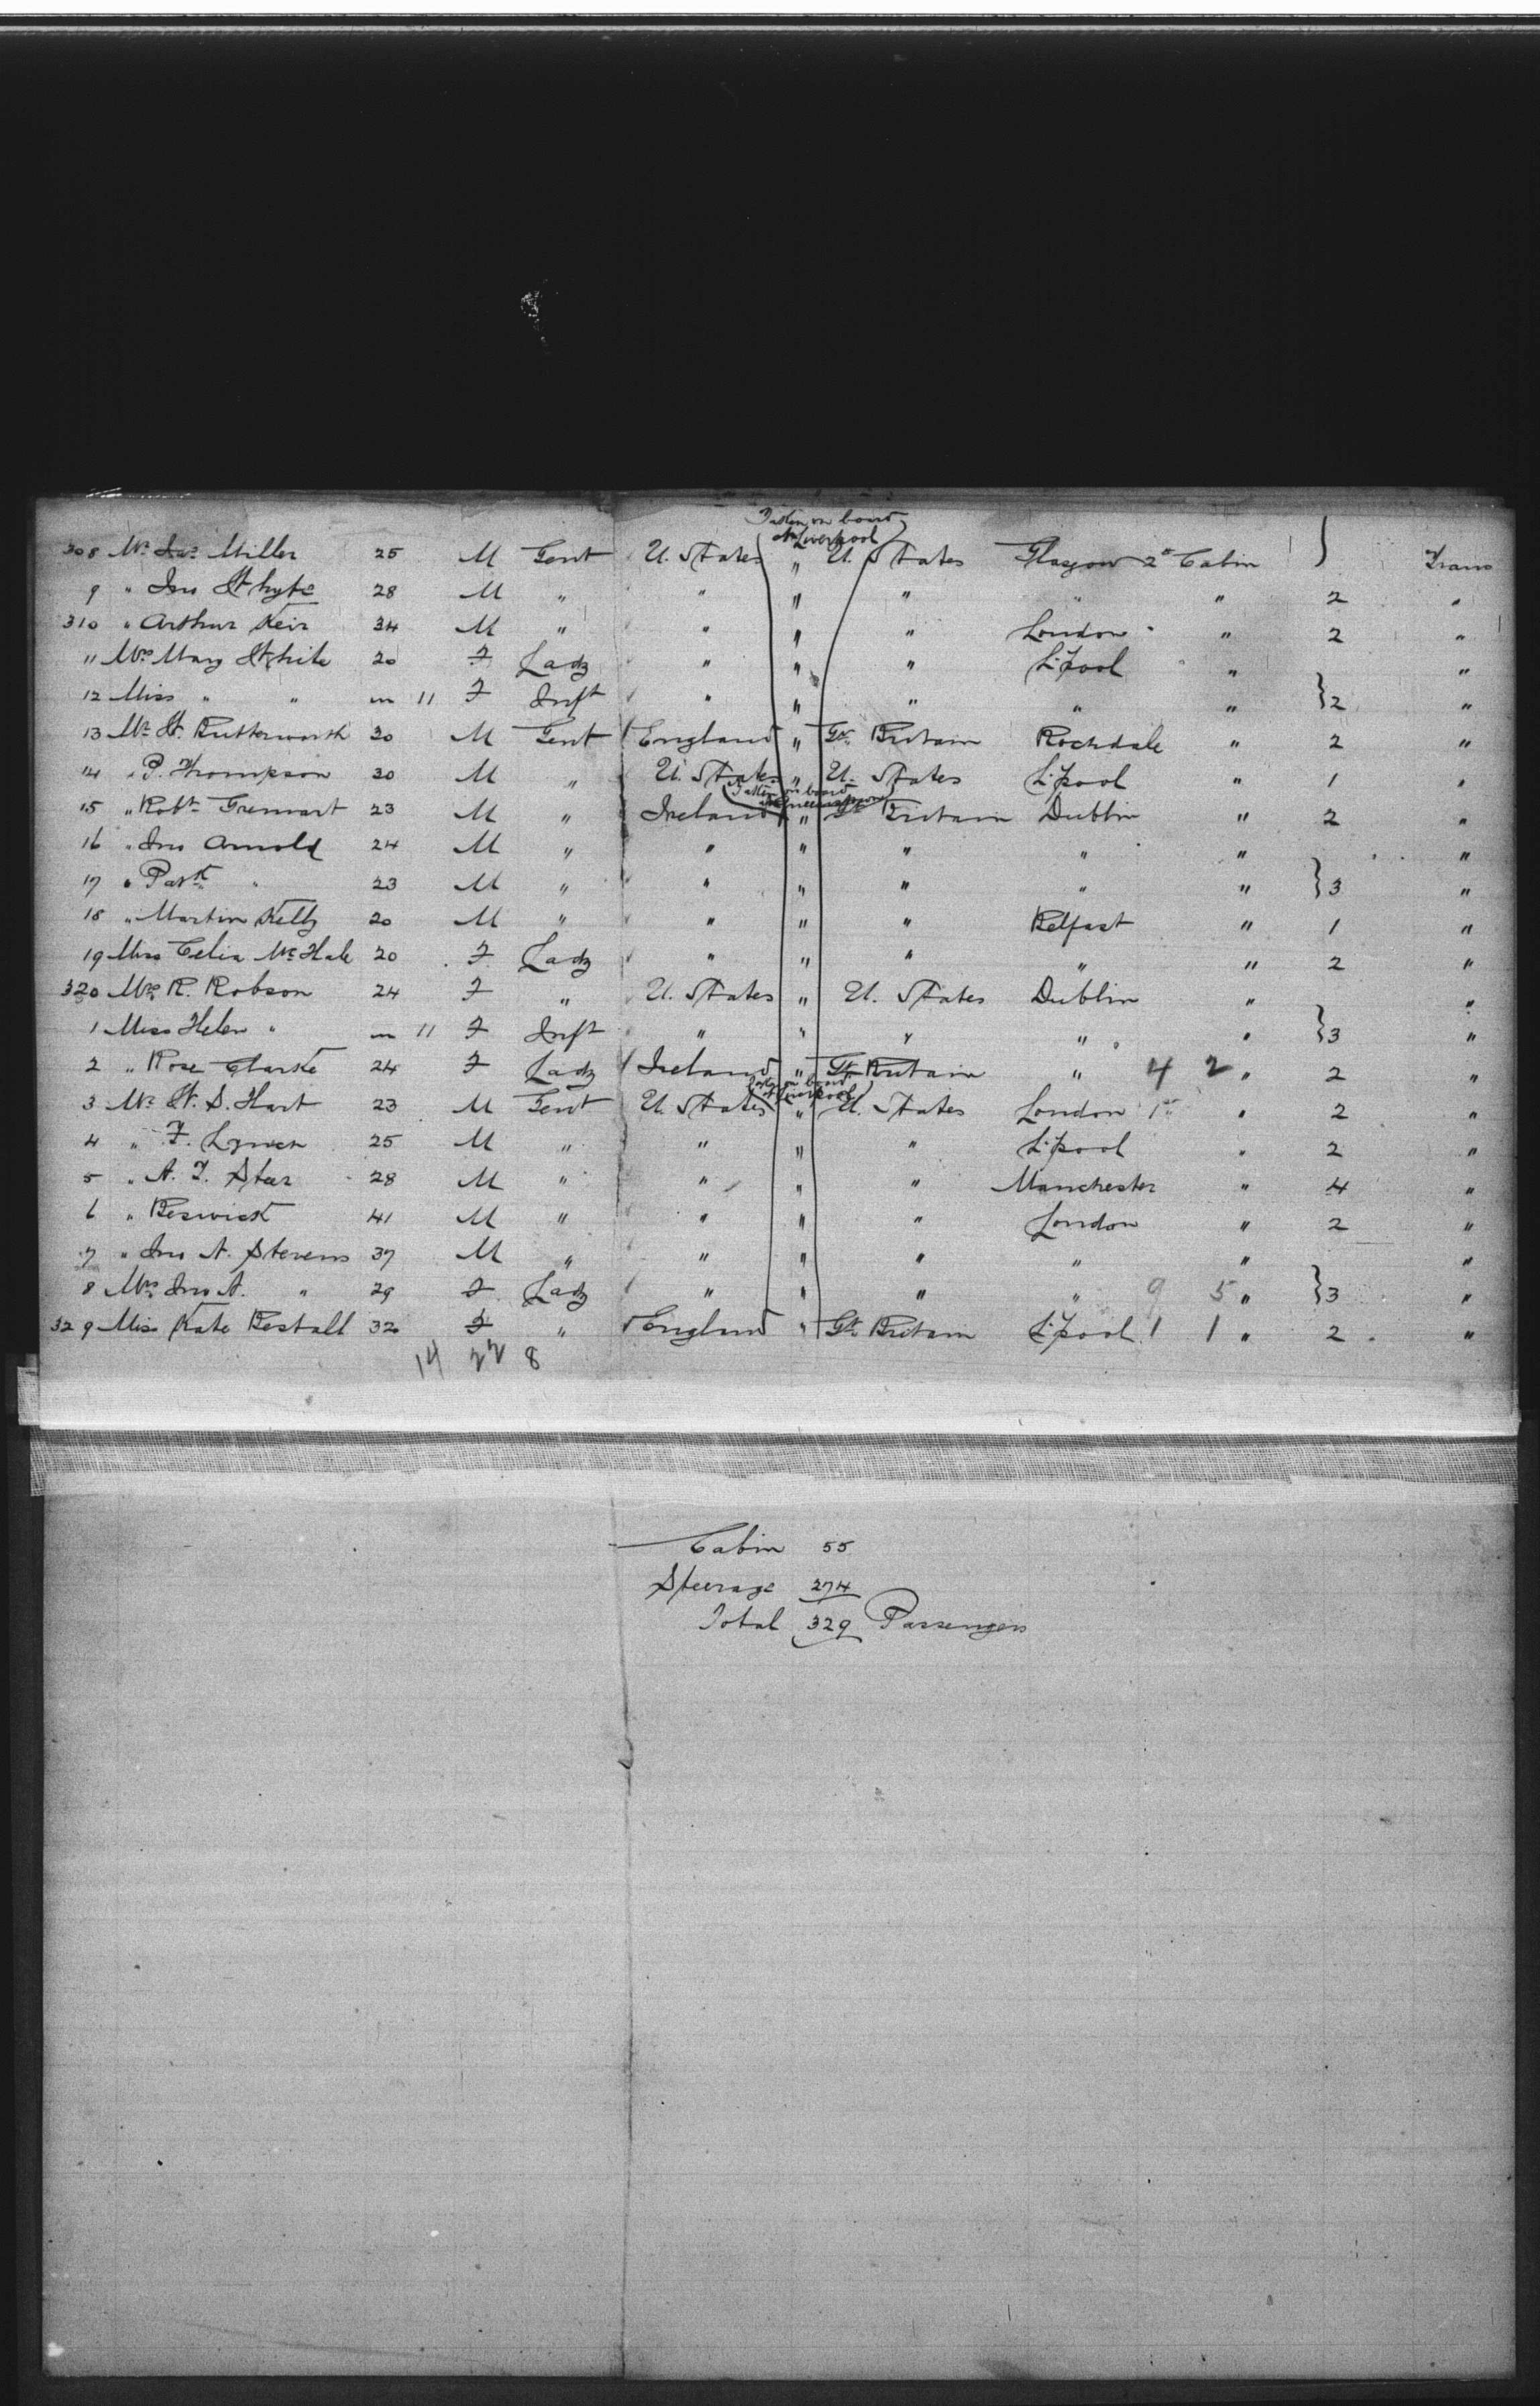 Taken on board
at Liverpool
308 Mr Jas Miller 25 M Gent U. States " U. States Glasgow 2d Cabin } Trans
9 " Jno Whyte 28 M " " " " " " 2 "
310 " Arthur Keir 34 M " " " " London " 2 "
11 Mrs Mary White 20 F Lady " " " L'pool " "
12 Miss " " m 11 F Inft " " " " " }2 "
13 Mr W. Butterworth 30 M Gent England " Gt Britain Rochdale " 2 "
14 " P. Thompson 30 M " U. States " U. States L'pool " 1 "
Taken on board
at Queenstown
15 " Robt 23 M " Ireland " Gt Britain Dublin " 2 "
16 " Jno Arnold 24 M " " " " " " "
17 " Patk " 23 M " " " " " " }3 "
18 " Martin Kelly 20 M " " " " Belfast " 1 "
19 Miss Celia McHale 20 F Lady " " " " " 2 "
320 Mrs R. Robson 24 F " U. States " U. States Dublin " "
1 Miss Helen " m 11 F Inft " " " " " }3 "
2 " Rose Clarke 24 F Lady Ireland " Gt Britain " 4 2 " 2 "
Taken on board
at Liverpool
3 Mr W. S. Hart 23 M Gent U. States " U. States London 1st " 2 "
4 " F. Lynch 25 M " " " " L'pool " 2 "
5 " A. T. Steer 28 M " " " " Manchester " 4 "
6 " Beswick 41 M " " " " London " 2 "
7 " Jno A. Stevens 37 M " " " " " " "
8 Mrs Jno A. " 29 F Lady " " " " 9 5 " }3 "
329 Miss Kate Restall 32 F " England " Gt Britain L'pool 1 1 " 2 "
14 22 8
Cabin 55
Steerage 274
Total 329 Passengers